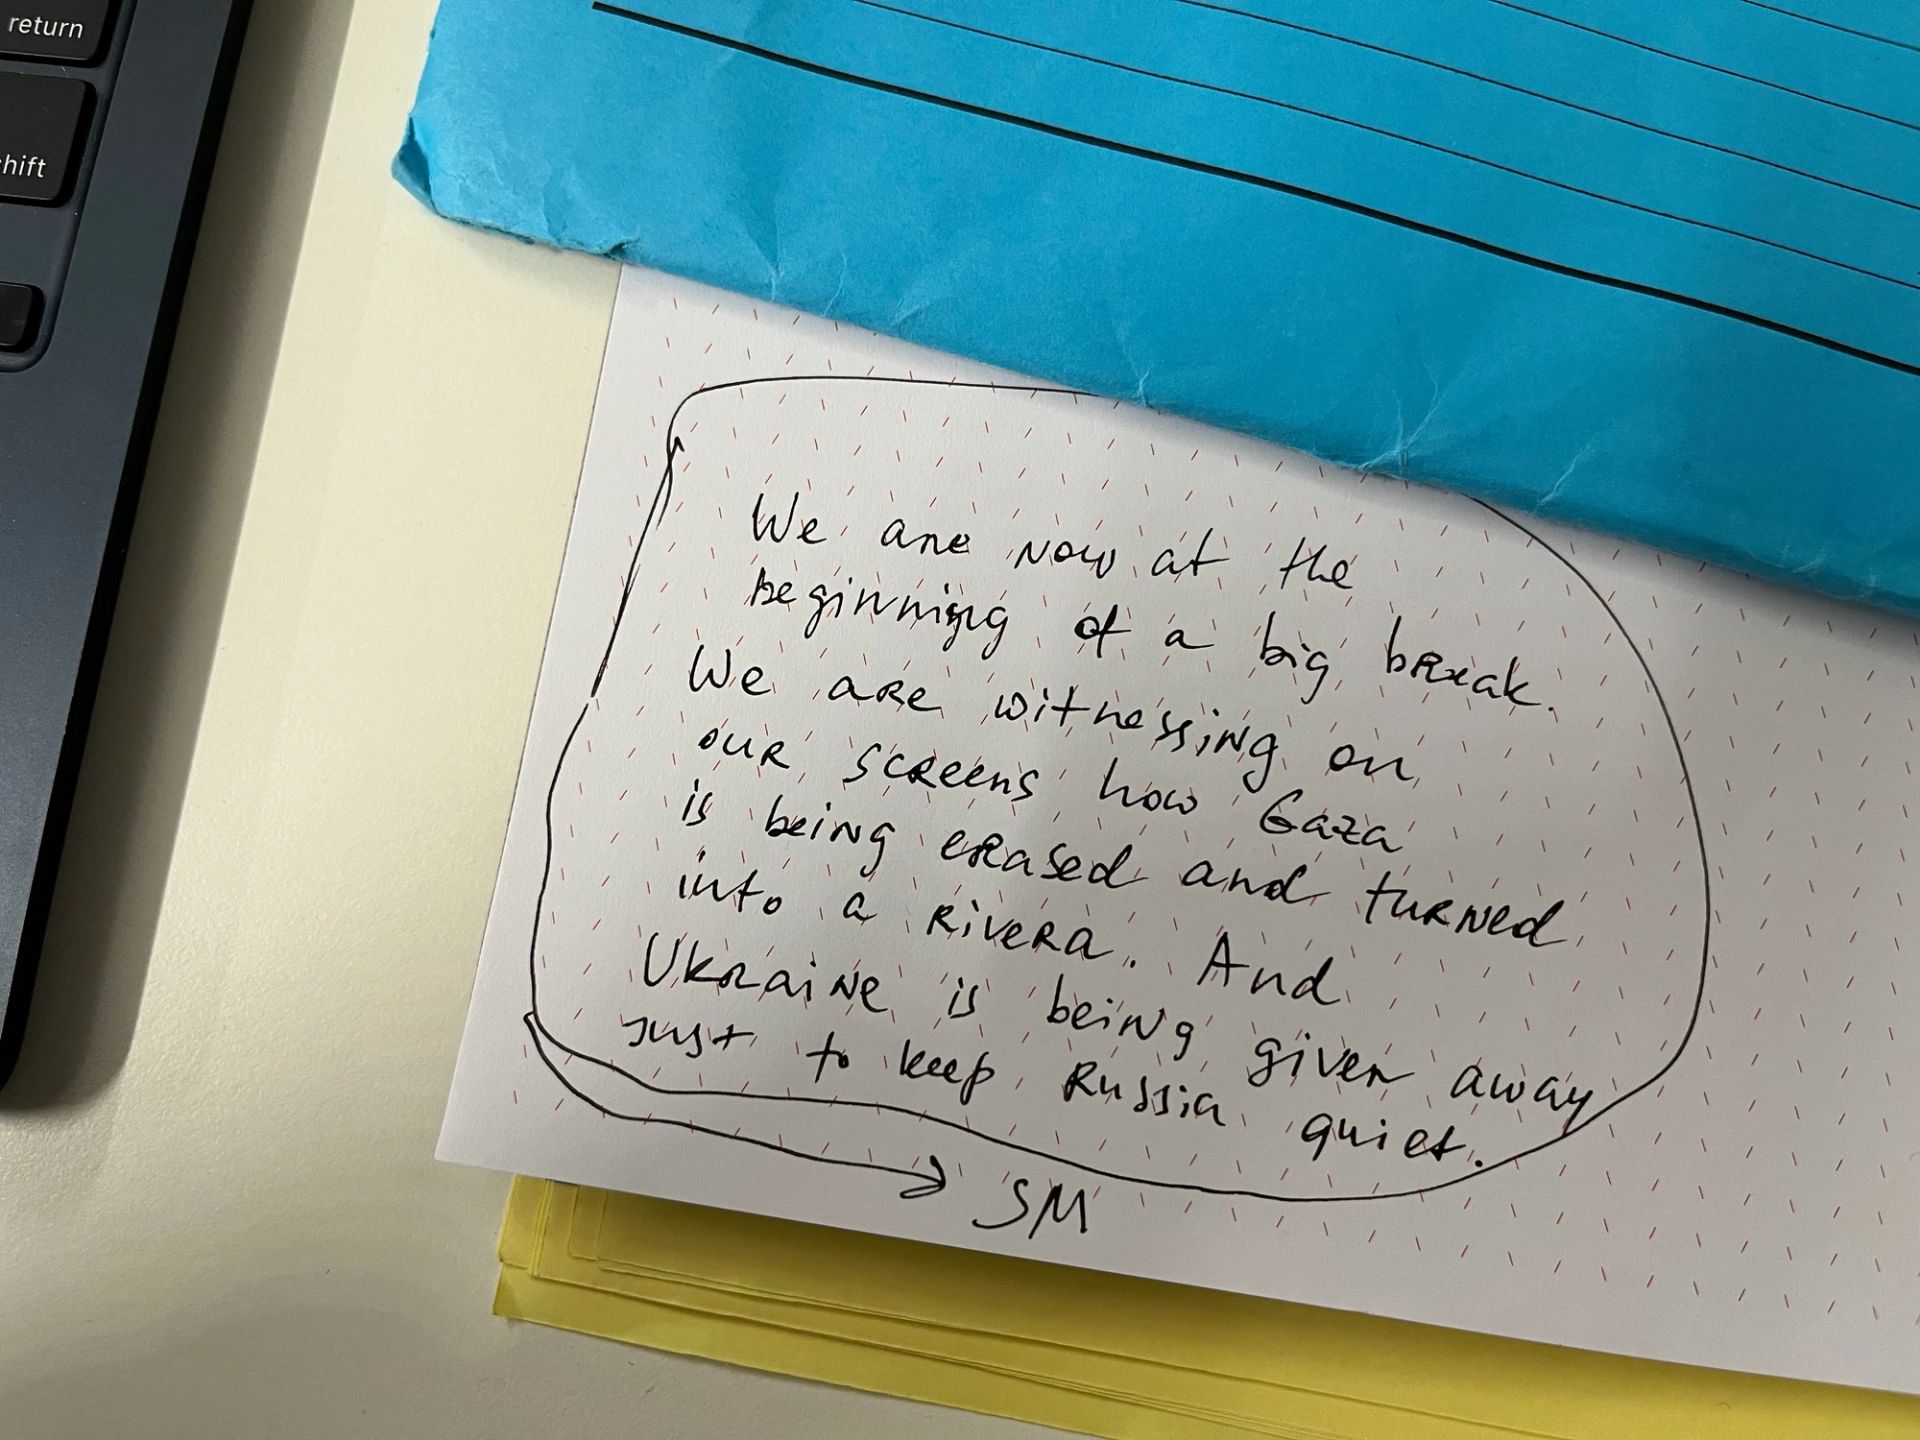 return
hift
We are now at the
beginning of a big break.
We are witnessing on
our screens how Gaza
is being erased and turned
into a rivera. And
Ukraine is being given away
just to keep Russia quiet.
SM